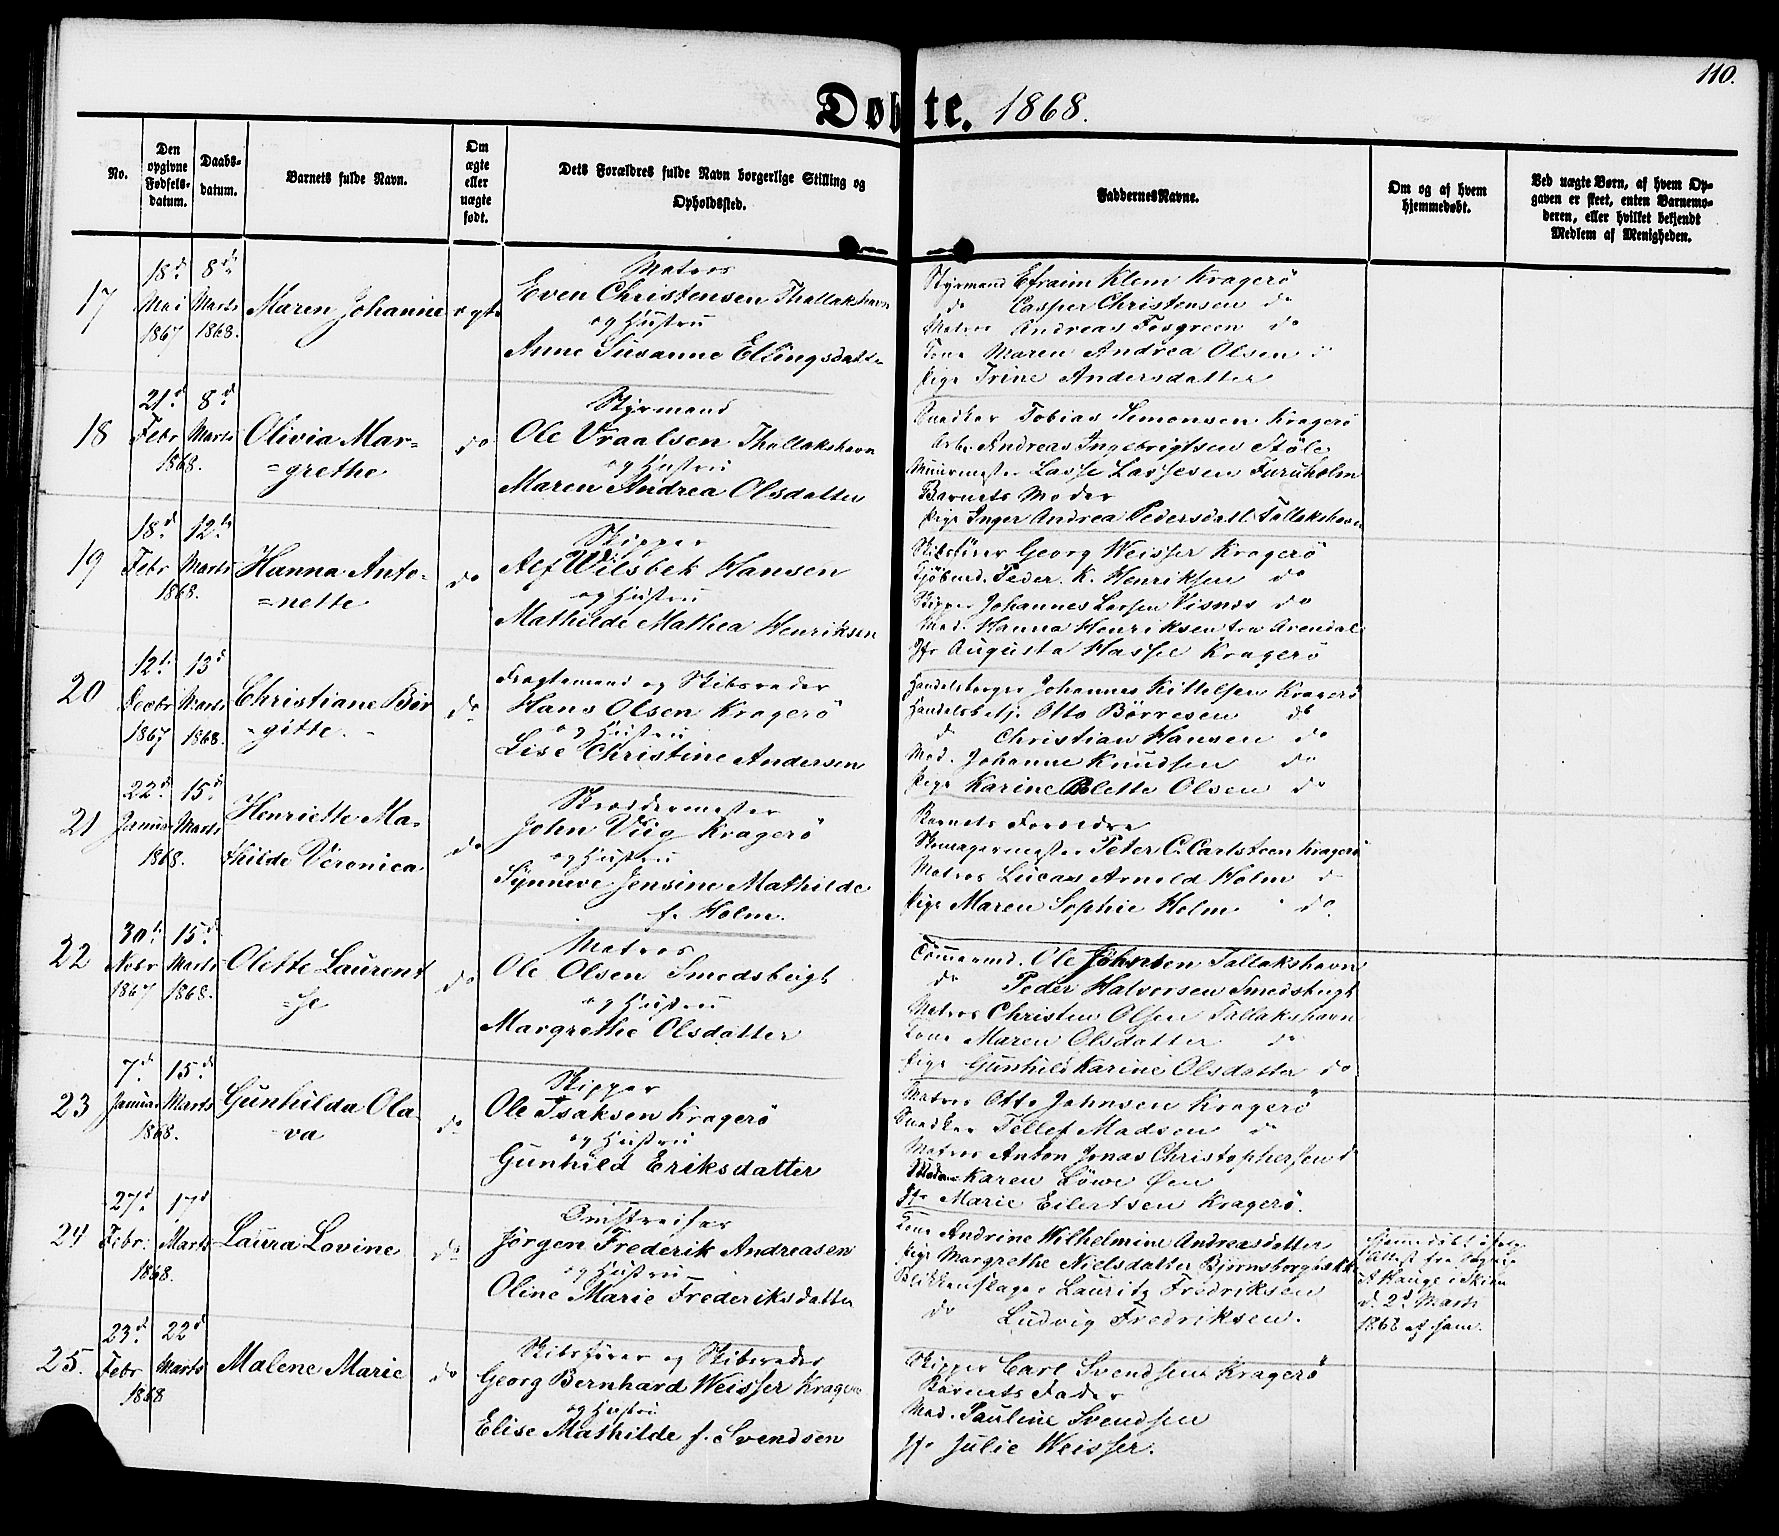 110.
Døbte. 1868.
No.
Den opgivne Fødsels-datum.
Daabs-datum.
Barnets fulde Navn.
Om ægte eller uægte født.
Dets Forældres fulde Navn borgerlige Stilling og Opholdssted.
Faddernes Navne.
Om og af hvem hjemmedøbt.
Ved uægte Børn, af hvem Op-gaven er skeet, enten Barnemo-deren, eller hvilket bekjendt Medlem af Menigheden.
17
18d Mai 1867
8de Marts 1868.
Maren Johanne
ægte
Matros
Even Christensen Thallakshavn
og Hustru
Anne Susanne Ellingsdatt
Styrmand Efraim Klem Kragerö
do Casper Christensen do
Matros Andreas Fosgreen do
Kone Maren Andrea Olsen
Pige Trine Andersdatter
18
21d Febr 1868.
8d Marts
Olivia Mar=
=grethe
do
Styrmand
Ole Vraalsen Thallakshavn
og Hustru
Maren Andrea Olsdatter
Snedker Tobias Simonsen Kragerö
Arb. Andreas Ingebrigtsen Stöle
Muurmester Lasse Lassesen Furuholm
Barnets Moder
Pige Inger Andrea Pedersdatt. Tallakshavn
19
18d Febr 1868.
12te Marts
Hanna Anto-
=nette
do
Skipper
Alf Wilsbek Hansen
og Hustru
Mathilde Mathea Henriksen
Skibsfører Georg Weisser Kragerö
Peder K. Henriksen do
Skipper Johannes Larsen Visnes do
Mad. Hanna Henriksen Arendal
Jfr Augusta Hassel Kragerö
20
12te Decbr 1867
13d Marts 1868.
Christiane Bir
-gitte.
do
Fragtemand og Skibsreder
Hans Olsen Kragerö
og Hustru
Lise Christine Andersen
Handelsborger Johannes Kittelsen Kragerö
Handelsbetj. Otto Börresen do
do Christian Hansen do
Mad. Johanne Knudsen do
Pige Karine Olsen do
21
22d Januar 1868.
15d Marts
Henriette Ma-
thilde Veronica
do
Skreddermester
John Viig Kragerö
og Hustru
Synneve Jensine Mathilde
f. Holm.
Barnets Forældre
Skomagermester Peter C. Carlsteen Kragerö
Matros Lucas Arnold Holm do
Pige Maren Sophie Holm do.
22
30te Novbr 1867
15d Marts 1868.
Olette Laurent
=se
do
Matros
Ole Olsen Smedsbugt
og Hustru
Margrethe Olsdatter
Tømmermd. Ole Johnsen Tallakshavn
do Peder Halvorsen Smedsbugt
Matros Christen Olsen Tallakshavn
Kone Maren Olsdatter do
Pige Gunhild Karine Olsdatter do
23
7de Januar 1868.
15d Marts
Gunhilda Ola-
va
do
Skipper
Ole Isaksen Kragerö
og Hustru
Gunhild Eriksdatter
Matros Otto Johnsen Kragerö
Snedker Tellef Madsen do
Matros Anton Jonas Christophersen d
Karen Löwe Øen
Jfr Marie Eilertsen Kragerö.
24
27d Febr. 1868.
17d Marts
Laura Lovine
do
Omstreifer
Jørgen Frederik Andreasen
og Hustru
Oline Marie Frederiksdatter
Kone Andrine Wilhelmine Andreasdatter
Pige Margrethe Nielsdatter
Blikkenslager Lauritz Fredriksen
do Ludvig Fredriksen.
Hjemmedøbt ifølge
Attest fra
Hauge i Skien
d. 2d Marts
1868 af ham.
25.
23d Febr 1868
22d Marts
Malene Marie
do
Skibsfører og Skibsreder
Georg Bernhard Weisser Kragerö
og Hustru
Elise Mathilde f. Svendsen
Skipper Carl Svendsen Kragerö
Barnets Fader
Mad. Pauline Svendsen
Jfr Julie Weisser.